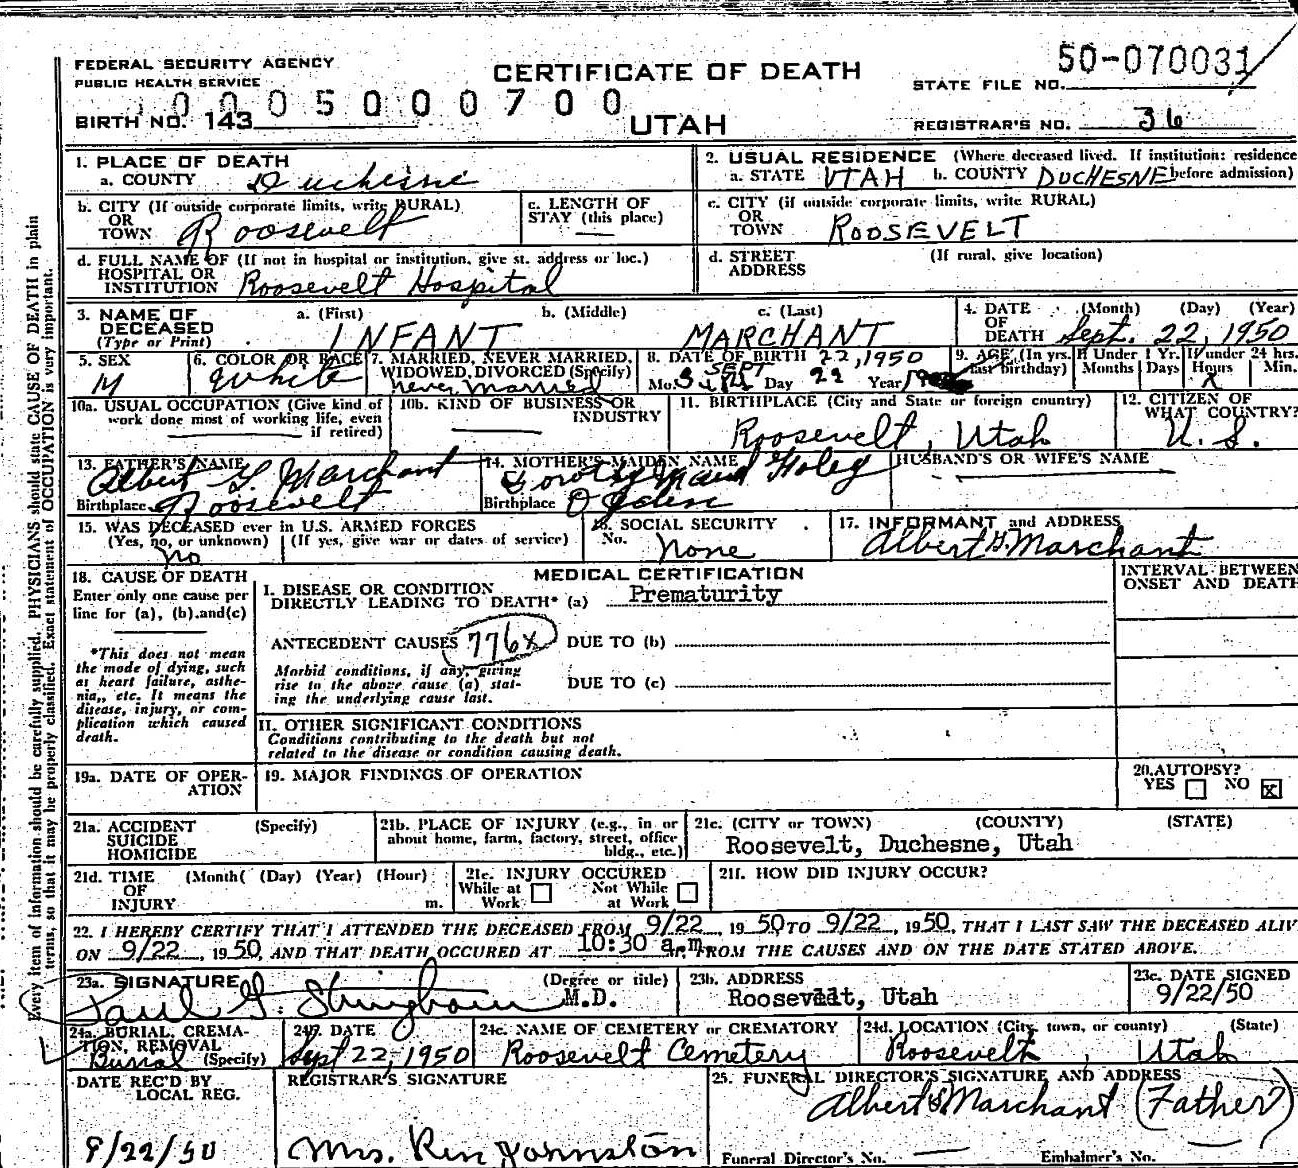 FEDERAL SECURITY AGENCY
PUBLIC HEALTH SERVICE
CERTIFICATE OF DEATH
50-070031
STATE FILE NO.
0005000700
BIRTH NO. 143
UTAH
REGISTRAR'S NO. 36
1. PLACE OF DEATH
a. COUNTY Duchesne
2. USUAL RESIDENCE (Where deceased lived. If institution: residence before admission)
a. STATE UTAH b. COUNTY DUCHESNE
b. CITY (If outside corporate limits, write RURAL)
OR
TOWN Roosevelt
c. LENGTH OF
STAY (this place)
c. CITY (if outside corporate limits, write RURAL)
OR
TOWN ROOSEVELT
d. FULL NAME OF (If not in hospital or institution, give st. address or loc.)
HOSPITAL OR
INSTITUTION Roosevelt Hospital
d. STREET (If rural, give location)
ADDRESS
3. NAME OF DECEASED
(Type or Print)
a. (First) b. (Middle) c. (Last)
INFANT MARCHANT
4. DATE OF DEATH (Month) (Day) (Year)
Sept. 22, 1950
5. SEX
M
6. COLOR OR RACE
White
7. MARRIED, NEVER MARRIED,
WIDOWED, DIVORCED (Specify)
Never Married
8. DATE OF BIRTH 22, 1950
SEPT
Mo. Day 22 Year
9. AGE (In yrs. last birthday)
If Under 1 Yr.
Months Days
If under 24 hrs.
Hours Min.
X
10a. USUAL OCCUPATION (Give kind of
work done most of working life, even
if retired)
10b. KIND OF BUSINESS OR
INDUSTRY
11. BIRTHPLACE (City and State or foreign country)
Roosevelt, Utah
12. CITIZEN OF
WHAT COUNTRY?
U. S.
13. FATHER'S NAME
Albert G. Marchant
Birthplace Roosevelt
14. MOTHER'S MAIDEN NAME
Dorothy Maud
Birthplace Ogden
HUSBAND'S OR WIFE'S NAME
15. WAS DECEASED ever in U.S. ARMED FORCES
(Yes, no, or unknown) (If yes, give war or dates of service)
No
16. SOCIAL SECURITY
No. None
17. INFORMANT and ADDRESS
Albert G. Marchant
18. CAUSE OF DEATH
Enter only one cause per
line for (a), (b).and(c)
*This does not mean
the mode of dying, such
as heart failure, asthe-
nia,, etc. It means the
disease, injury, or com-
plication which caused
death.
MEDICAL CERTIFICATION
I. DISEASE OR CONDITION
DIRECTLY LEADING TO DEATH* (a) Prematurity
ANTECEDENT CAUSES 776X DUE TO (b)
Morbid conditions, if any, giving
rise to the above cause (a) stat-
ing the underlying cause last.
DUE TO (c)
II. OTHER SIGNIFICANT CONDITIONS
Conditions contributing to the death but not
related to the disease or condition causing death.
INTERVAL BETWEEN
ONSET AND DEATH
19a. DATE OF OPER-
ATION
19. MAJOR FINDINGS OF OPERATION
20.AUTOPSY?
YES NO X
21a. ACCIDENT (Specify)
SUICIDE
HOMICIDE
21b. PLACE OF INJURY (e.g., in or
about home, farm, factory, street, office
bldg., etc.)
21c. (CITY or TOWN) (COUNTY) (STATE)
Roosevelt, Duchesne, Utah
21d. TIME (Month( (Day) (Year) (Hour)
OF
INJURY m.
21e. INJURY OCCURED
While at Work Not While at Work
21f. HOW DID INJURY OCCUR?
22. I HEREBY CERTIFY THAT I ATTENDED THE DECEASED FROM 9/22, 1950 TO 9/22, 1950, THAT I LAST SAW THE DECEASED ALIV
ON 9/22, 1950, AND THAT DEATH OCCURED AT 10:30 a.m. FROM THE CAUSES AND ON THE DATE STATED ABOVE.
23a. SIGNATURE (Degree or title)
Paul G. Stringham M.D.
23b. ADDRESS
Roosevelt, Utah
23c. DATE SIGNED
9/22/50
24a. BURIAL, CREMA-
TION, REMOVAL
Burial (Specify)
24b. DATE
Sept 22, 1950
24c. NAME OF CEMETERY or CREMATORY
Roosevelt Cemetery
24d. LOCATION (City, town, or county) (State)
Roosevelt, Utah
DATE REC'D BY
LOCAL REG.
9/22/50
REGISTRAR'S SIGNATURE
Mrs. Ren Johnston
25. FUNERAL DIRECTOR'S SIGNATURE AND ADDRESS
Albert G Marchant (Father)
Funeral Director's No. Embalmer's No.
Every item of information should be carefully supplied. PHYSICIANS should state CAUSE OF DEATH in plain
terms, so that it may be properly classified. Exact statement of OCCUPATION is very important.